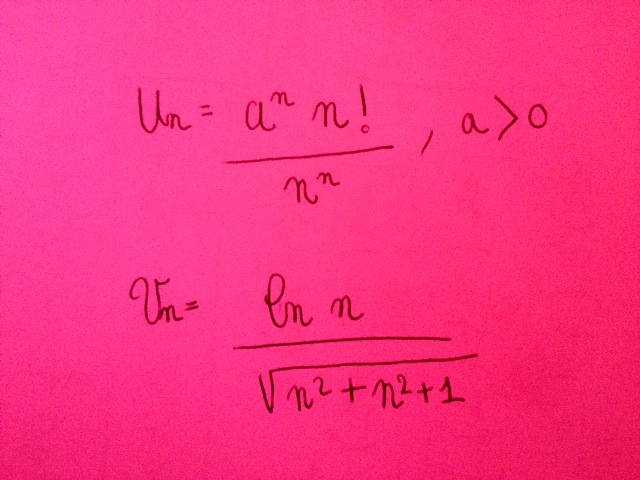 Un = aⁿ n! / nⁿ , a > 0
Vn = ln n / √(n² + n² + 1)